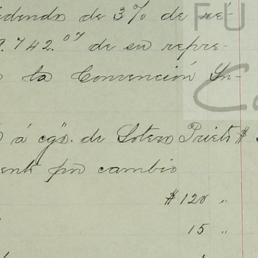 dividendo de 3% de re-
9.742.07 de su repre-
la Convención In-
á cgo. de Sotero Prieto $
ente por cambio
$ 120 "
15 "
FU
C